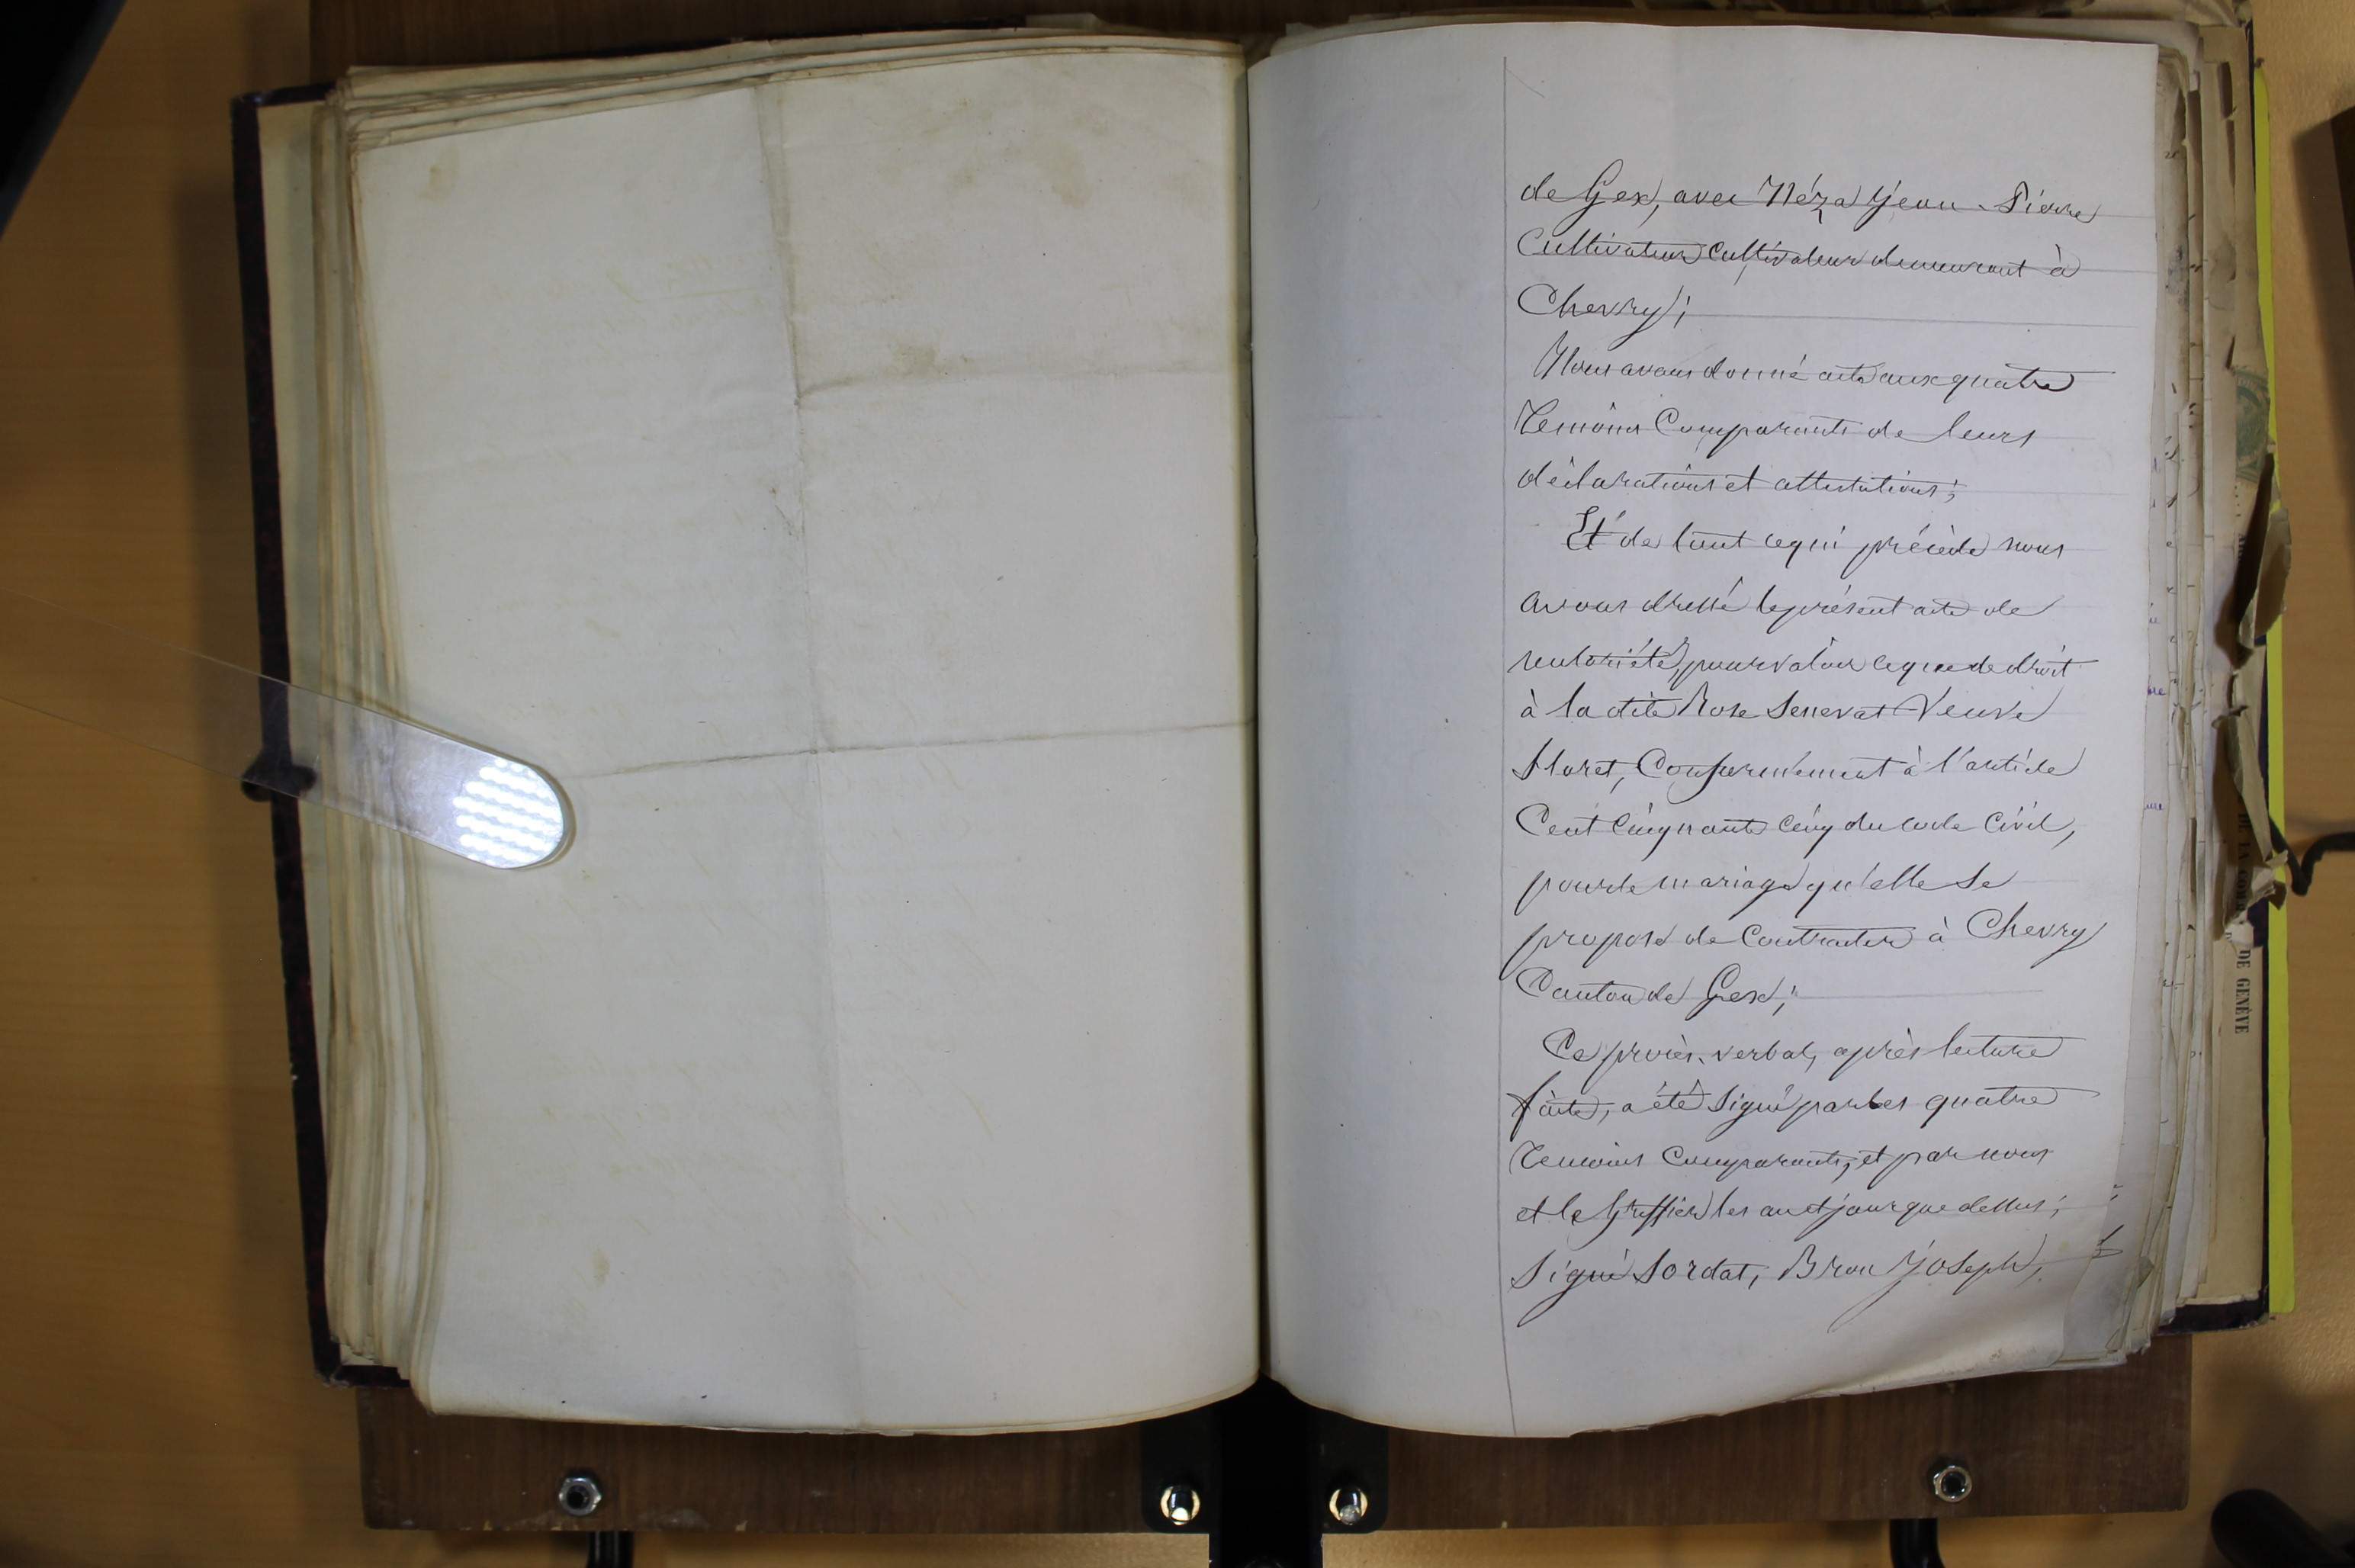 de Gex, avec Néza Jean-Pierre
Cultivateur cultivateur demeurant à
Chevry;
Nous avons donné acte aux quatre
Temoins Comparants de leurs
déclarations et attestations;
Et de tout ce qui précède nous
avons dressé le présent acte de
notoriété, pour valoir ce que de droit
à la dite Rose Senevat Veuve
Floret, Conformément à l'article
Cent Cinquante Cinq du Code Civil,
pour le mariage qu'elle se
propose de Contracter à Chevry
Canton de Gex;
Ce procès-verbal, après lecture
faite, a été Signé par les quatre
Temoins Comparants, et par nous
et le Greffier les an et jour que dessus;
Signé Sordat, Bron Joseph,
DE GENÈVE